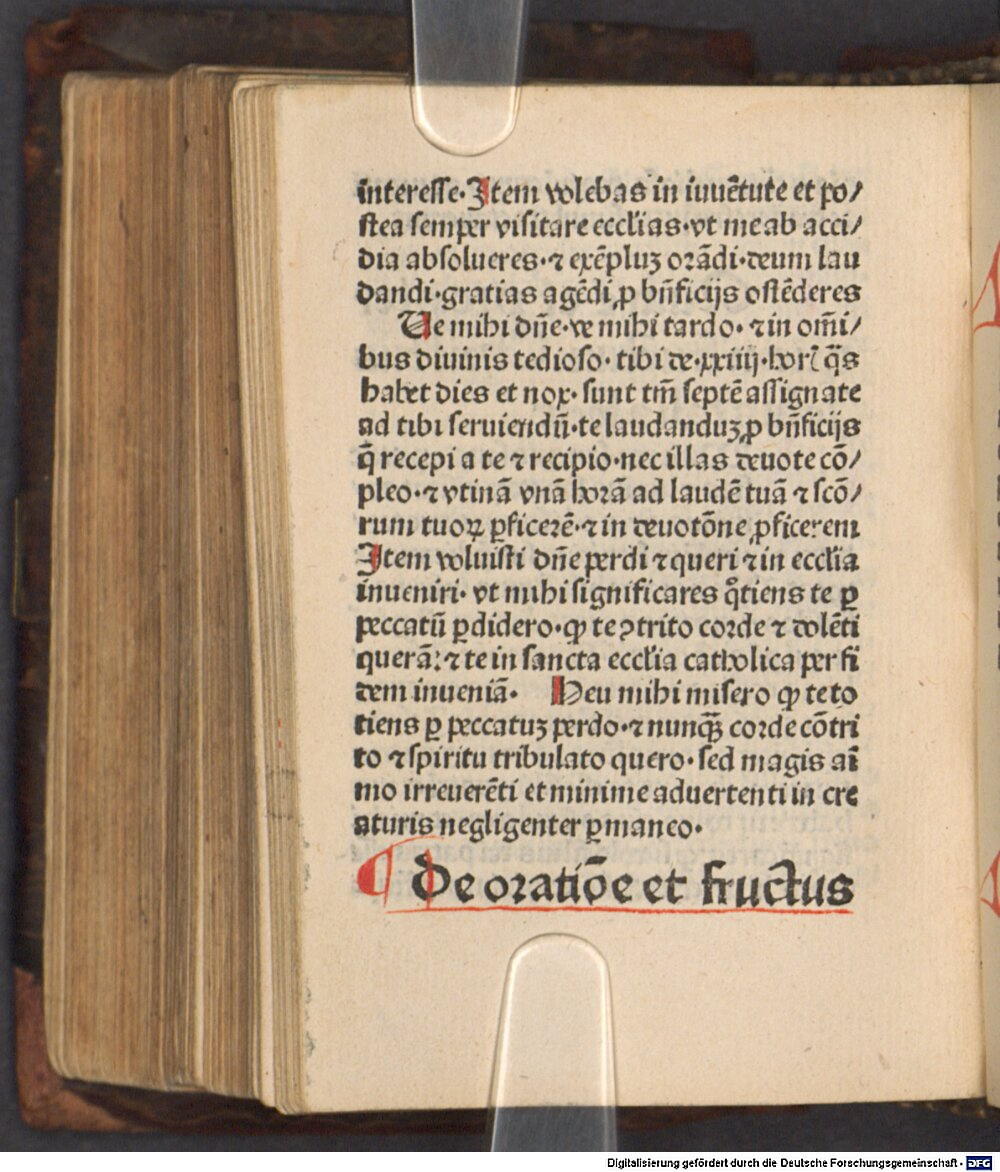 interesse·Item volebas in iuuētute et po/
stea semper visitare ecclias·vt me ab acci/
dia absolueres·⁊ exēpluꝫ orādi·deum lau
dandi·gratias agēdi ꝓ bn̄ficijs ostēderes
Ve mihi dn̄e·ve mihi tardo·⁊ in om̄i/
bus diuinis tedioso·tibi de·xxiiij·hor̄ q̄s
habet dies et nox·sunt tm̄ septē assignate
ad tibi seruiendū·te laudanduꝫ ꝓ bn̄ficijs
q̄ recepi a te ⁊ recipio·nec illas deuote cō/
pleo·⁊ vtinā vnā horā ad laudē tuā ⁊ scō/
rum tuoꝝ ꝑficerē·⁊ in deuotōne ꝓficerem
Item voluisti dn̄e perdi ⁊ queri ⁊ in ecclia
inueniri·vt mihi significares qͦtiens te ꝑ
peccatū ꝑdidero·ꝙ te ꝯtrito corde ⁊ dolēti
querā:⁊ te in sancta ecclia catholica per fi
dem inueniā· Heu mihi misero ꝙ te to
tiens ꝑ peccatuꝫ perdo·⁊ nunqꝫ̄ corde cōtri
to ⁊ spiritu tribulato quero·sed magis aī
mo irreuerēti et minime aduertenti in cre
aturis negligenter ꝑmaneo·
¶ De oratiōe et fructus
Digitalisierung gefördert durch die Deutsche Forschungsgemeinschaft - DFG